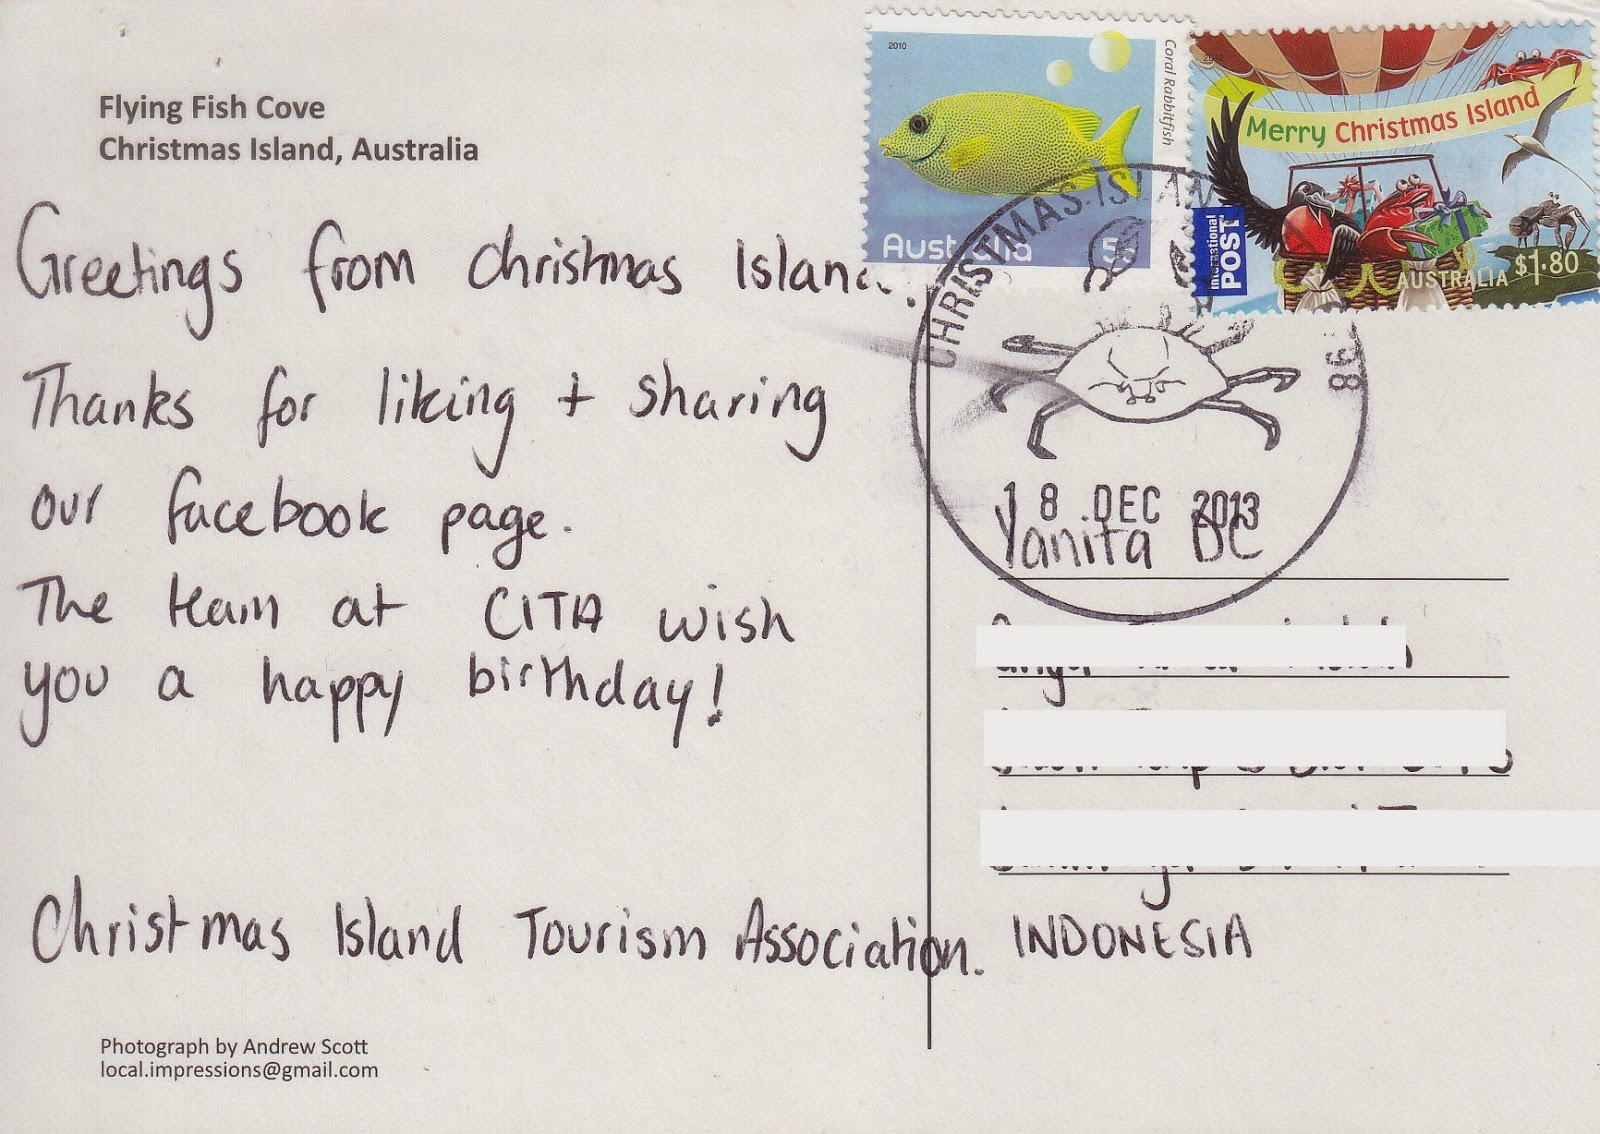 Flying Fish Cove
Christmas Island, Australia
Greetings from Christmas Island.
Thanks for liking + sharing
our facebook page.
The team at CITA wish
you a happy birthday!
Christmas Island Tourism Association.
Photograph by Andrew Scott
local.impressions@gmail.com
2010
Coral Rabbitfish
Australia 5c
Merry Christmas Island
International
POST
AUSTRALIA $1.80
CHRISTMAS ISLAND
18 DEC 2013
Yanita DC
INDONESIA